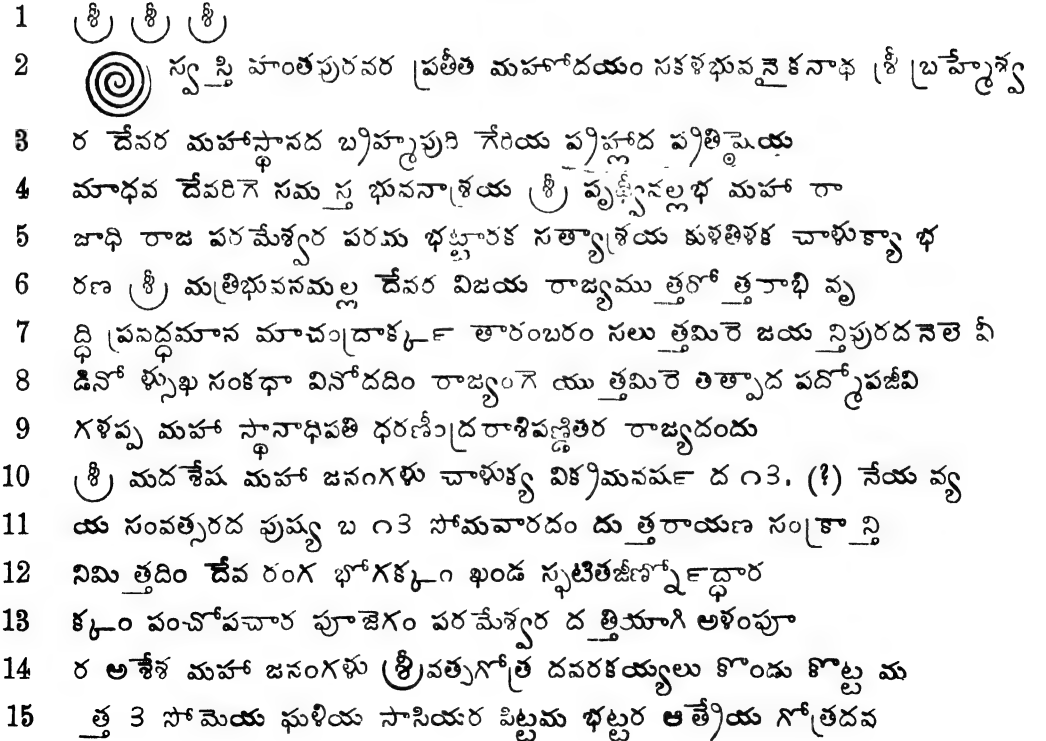 1 శ్రీ శ్రీ శ్రీ
2 స్వస్తి హంతపురవర ప్రతీత మహోదయం సకళభువనైకనాథ శ్రీ బ్రహ్మేశ్వ
3 ర దేవర మహాస్థానద బ్రహ్మపురి గేరియ ప్రహ్లాద ప్రతిష్ఠెయ
4 మాధవ దేవరిగె సమస్త భువనాశ్రయ శ్రీ పృథ్వీవల్లభ మహా రా
5 జాధి రాజ పరమేశ్వర పరమ భట్టారక సత్యాశ్రయ కుళతిళక చాళుక్యా భ
6 రణ శ్రీ మత్రిభువనమల్ల దేవర విజయ రాజ్యముత్తరోత్తరాభి వృ
7 ద్ధి ప్రవర్ద్ధమాన మాచంద్రార్క్క తారంబరం సలుత్తమిరె జయన్తిపురదనెలె వీ
8 డినోళ్సుఖ సంకధా వినోదదిం రాజ్యంగెయుత్తమిరె తిత్పాద పద్మోపజీవి
9 గళప్ప మహా స్థానాధిపతి ధరణీంద్రరాశిపణ్డితర రాజ్యదందు
10 శ్రీ మదశేష మహా జనంగళు చాళుక్య విక్రమవర్ష ద ౧3. (?) నేయ వ్య
11 య సంవత్సరద పుష్య బ ౧3 సోమవారదందుత్తరాయణ సంక్రాన్తి
12 నిమిత్తదిం దేవ రంగ భోగక్కం ఖండ స్ఫటితజీర్ణ్నోద్ధార
13 క్కం పంచోపచార పూజెగం పరమేశ్వర దత్తియాగి అళంపూ
14 ర అశేశ మహా జనంగళు శ్రీవత్సగోత్ర దవరకయ్యలు కొండు కొట్ట మ
15 త్త 3 సోమెయ ఘళియ సాసియర పిట్టమ భట్టర ఆత్రేయ గోత్రదవ